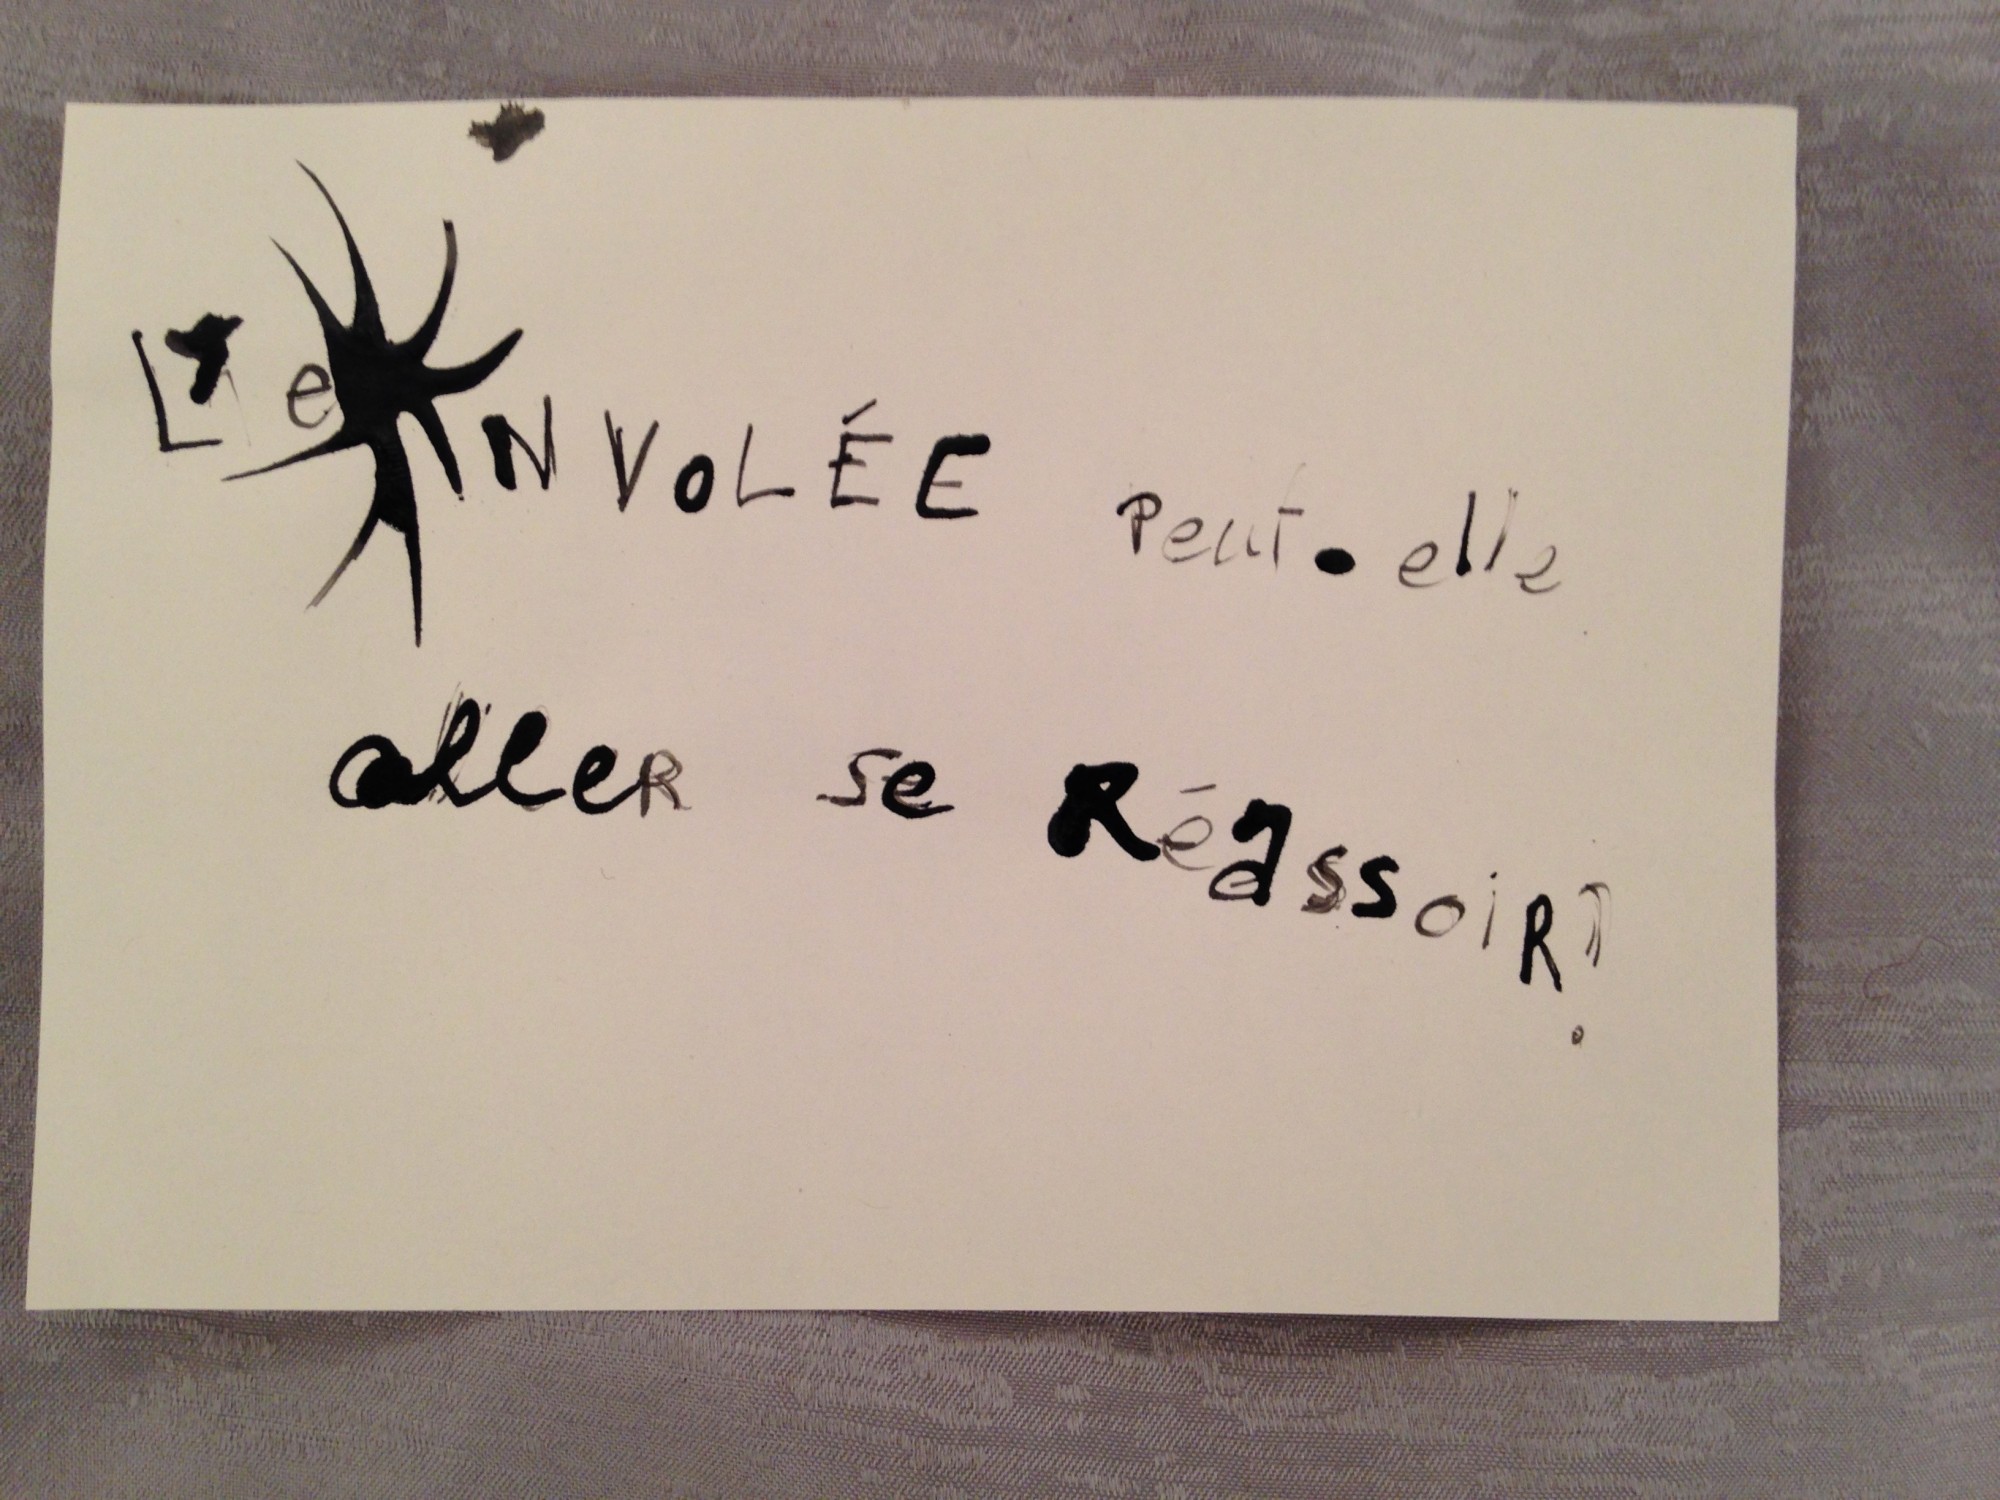 L'eNVOLÉE Peut-elle
alleR se RéassoiR?